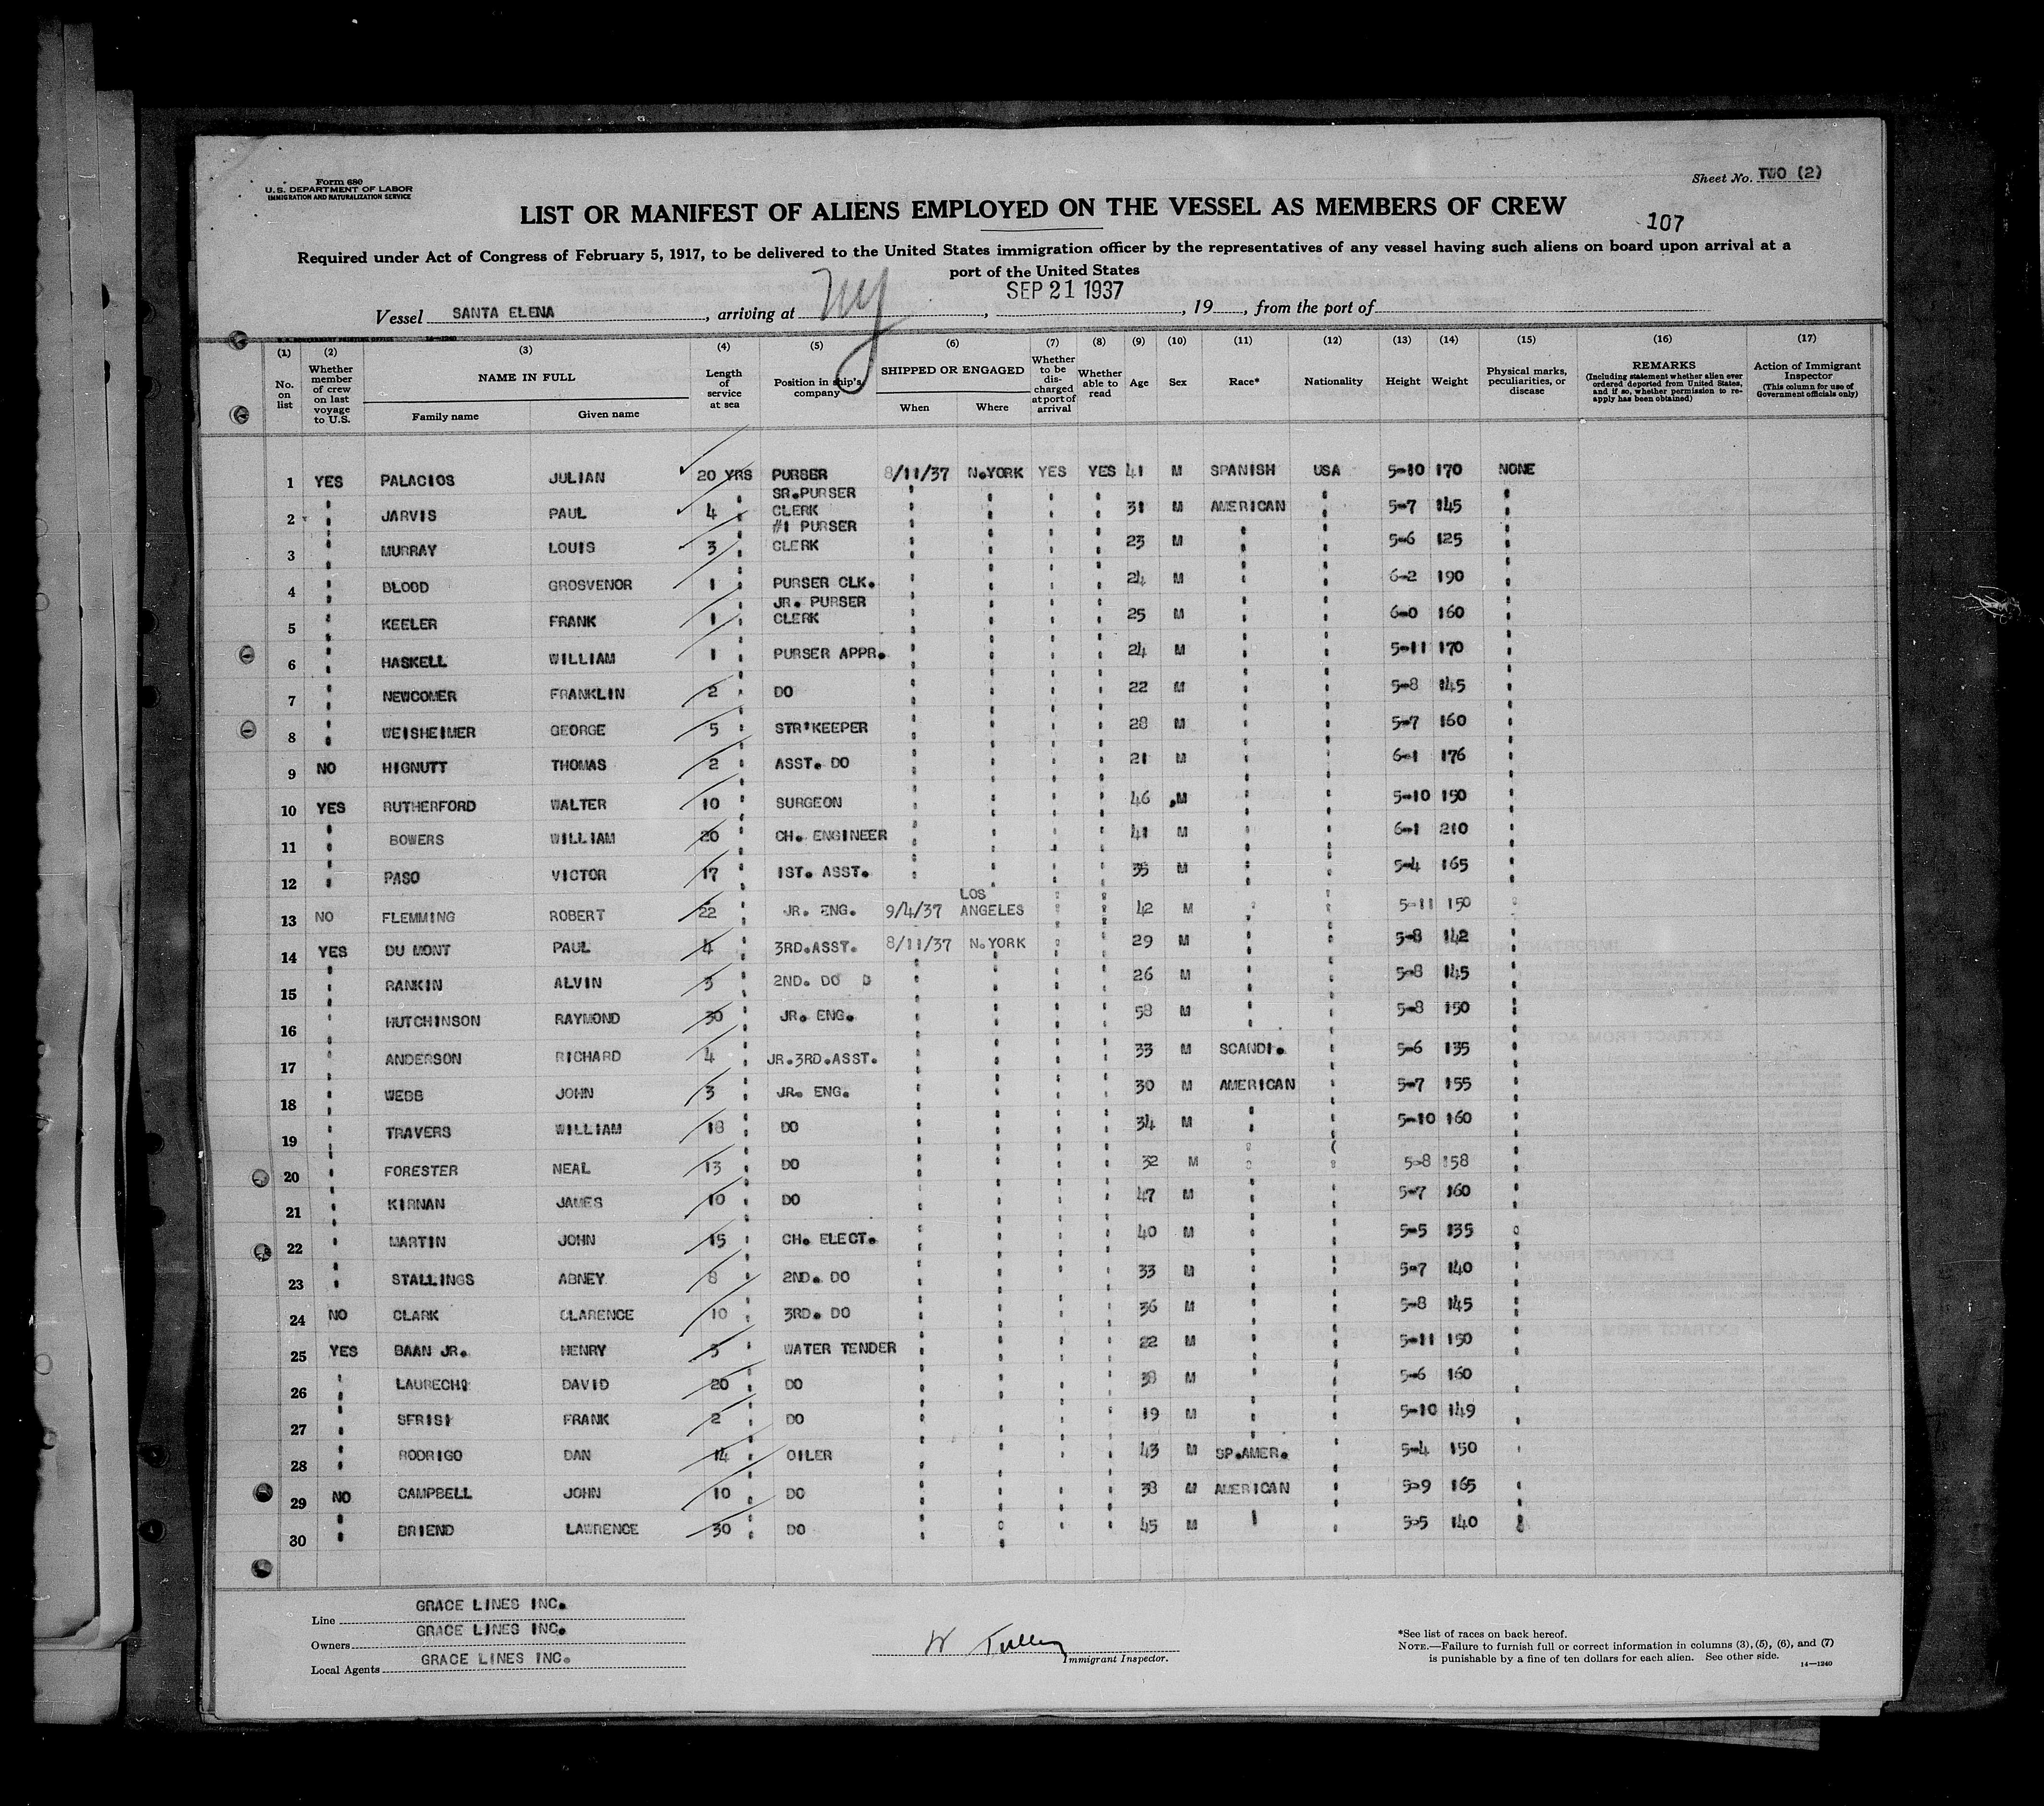 Form 680
U. S. DEPARTMENT OF LABOR
IMMIGRATION AND NATURALIZATION SERVICE
Sheet No. TWO (2)
LIST OR MANIFEST OF ALIENS EMPLOYED ON THE VESSEL AS MEMBERS OF CREW
107
Required under Act of Congress of February 5, 1917, to be delivered to the United States immigration officer by the representatives of any vessel having such aliens on board upon arrival at a
port of the United States
SEP 21 1937
Vessel SANTA ELENA, arriving at NY, , 19 , from the port of
(1) No. on list
(2) Whether member of crew on last voyage to U.S.
(3) NAME IN FULL Family name Given name
(4) Length of service at sea
(5) Position in ship's company
(6) SHIPPED OR ENGAGED When Where
(7) Whether to be discharged at port of arrival
(8) Whether able to read
(9) Age
(10) Sex
(11) Race*
(12) Nationality
(13) Height
(14) Weight
(15) Physical marks, peculiarities, or disease
(16) REMARKS (Including statement whether alien ever ordered deported from United States, and if so, whether permission to re-apply has been obtained)
(17) Action of Immigrant Inspector (This column for use of Government officials only)
1 YES PALACIOS JULIAN 20 YRS PURSER 8/11/37 N.YORK YES YES 41 M SPANISH USA 5-10 170 NONE
2 " JARVIS PAUL 4 " SR.PURSER CLERK " " " " 31 M AMERICAN " 5-7 145 "
3 " MURRAY LOUIS 3 " #1 PURSER CLERK " " " " 23 M " " 5-6 125 "
4 " BLOOD GROSVENOR 1 " PURSER CLK. " " " " 24 M " " 6-2 190 "
5 " KEELER FRANK 1 " JR. PURSER CLERK " " " " 25 M " " 6-0 160 "
6 " HASKELL WILLIAM 1 " PURSER APPR. " " " " 24 M " " 5-11 170 "
7 " NEWCOMER FRANKLIN 2 " DO " " " " 22 M " " 5-8 145 "
8 " WEISHEIMER GEORGE 5 " STR'KEEPER " " " " 28 M " " 5-7 160 "
9 NO HIGNUTT THOMAS 2 " ASST. DO " " " " 21 M " " 6-1 176 "
10 YES RUTHERFORD WALTER 10 " SURGEON " " " " 46 M " " 5-10 150 "
11 " BOWERS WILLIAM 20 " CH. ENGINEER " " " " 41 M " " 6-1 210 "
12 " PASO VICTOR 17 " 1ST. ASST. " " " " 35 M " " 5-4 165 "
13 NO FLEMMING ROBERT 22 " JR. ENG. 9/4/37 LOS ANGELES " " 42 M " " 5-11 150 "
14 YES DU MONT PAUL 4 " 3RD.ASST. 8/11/37 N.YORK " " 29 M " " 5-8 142 "
15 " RANKIN ALVIN 3 " 2ND. DO D " " " " 26 M " " 5-8 145 "
16 " HUTCHINSON RAYMOND 30 " JR. ENG. " " " " 58 M " " 5-8 150 "
17 " ANDERSON RICHARD 4 " JR.3RD.ASST. " " " " 33 M SCANDI. " 5-6 135 "
18 " WEBB JOHN 3 " JR. ENG. " " " " 30 M AMERICAN " 5-7 155 "
19 " TRAVERS WILLIAM 18 " DO " " " " 34 M " " 5-10 160 "
20 " FORESTER NEAL 13 " DO " " " " 32 M " " 5-8 158 "
21 " KIRNAN JAMES 10 " DO " " " " 47 M " " 5-7 160 "
22 " MARTIN JOHN 15 " CH. ELECT. " " " " 40 M " " 5-5 135 "
23 " STALLINGS ABNEY 8 " 2ND. DO " " " " 33 M " " 5-7 140 "
24 NO CLARK CLARENCE 10 " 3RD. DO " " " " 36 M " " 5-8 145 "
25 YES BAAN JR. HENRY 3 " WATER TENDER " " " " 22 M " " 5-11 150 "
26 " DAVID 20 " DO " " " " 38 M " " 5-6 160 "
27 " SFRISI FRANK 2 " DO " " " " 19 M " " 5-10 149 "
28 " RODRIGO DAN 14 " OILER " " " " 43 M SP.AMER. " 5-4 150 "
29 NO CAMPBELL JOHN 10 " DO " " " " 38 M AMERICAN " 5-9 165 "
30 " BRIEND LAWRENCE 30 " DO " " " " 45 M " " 5-5 140 "
Line GRACE LINES INC.
Owners GRACE LINES INC.
Local Agents GRACE LINES INC.
W
Immigrant Inspector.
*See list of races on back hereof.
NOTE.—Failure to furnish full or correct information in columns (3), (5), (6), and (7)
is punishable by a fine of ten dollars for each alien. See other side.
14—1240